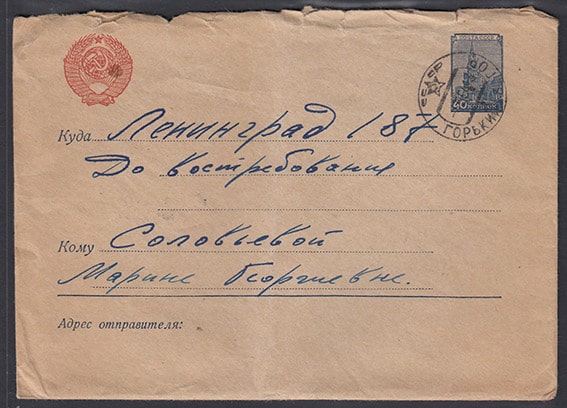 ПОЧТА СССР
40 КОПЕЕК
СССР
ГОРЬКИЙ
Куда Ленинград 187
До востребования
Кому Соловьевой
Марине Георгиевне.
Адрес отправителя: